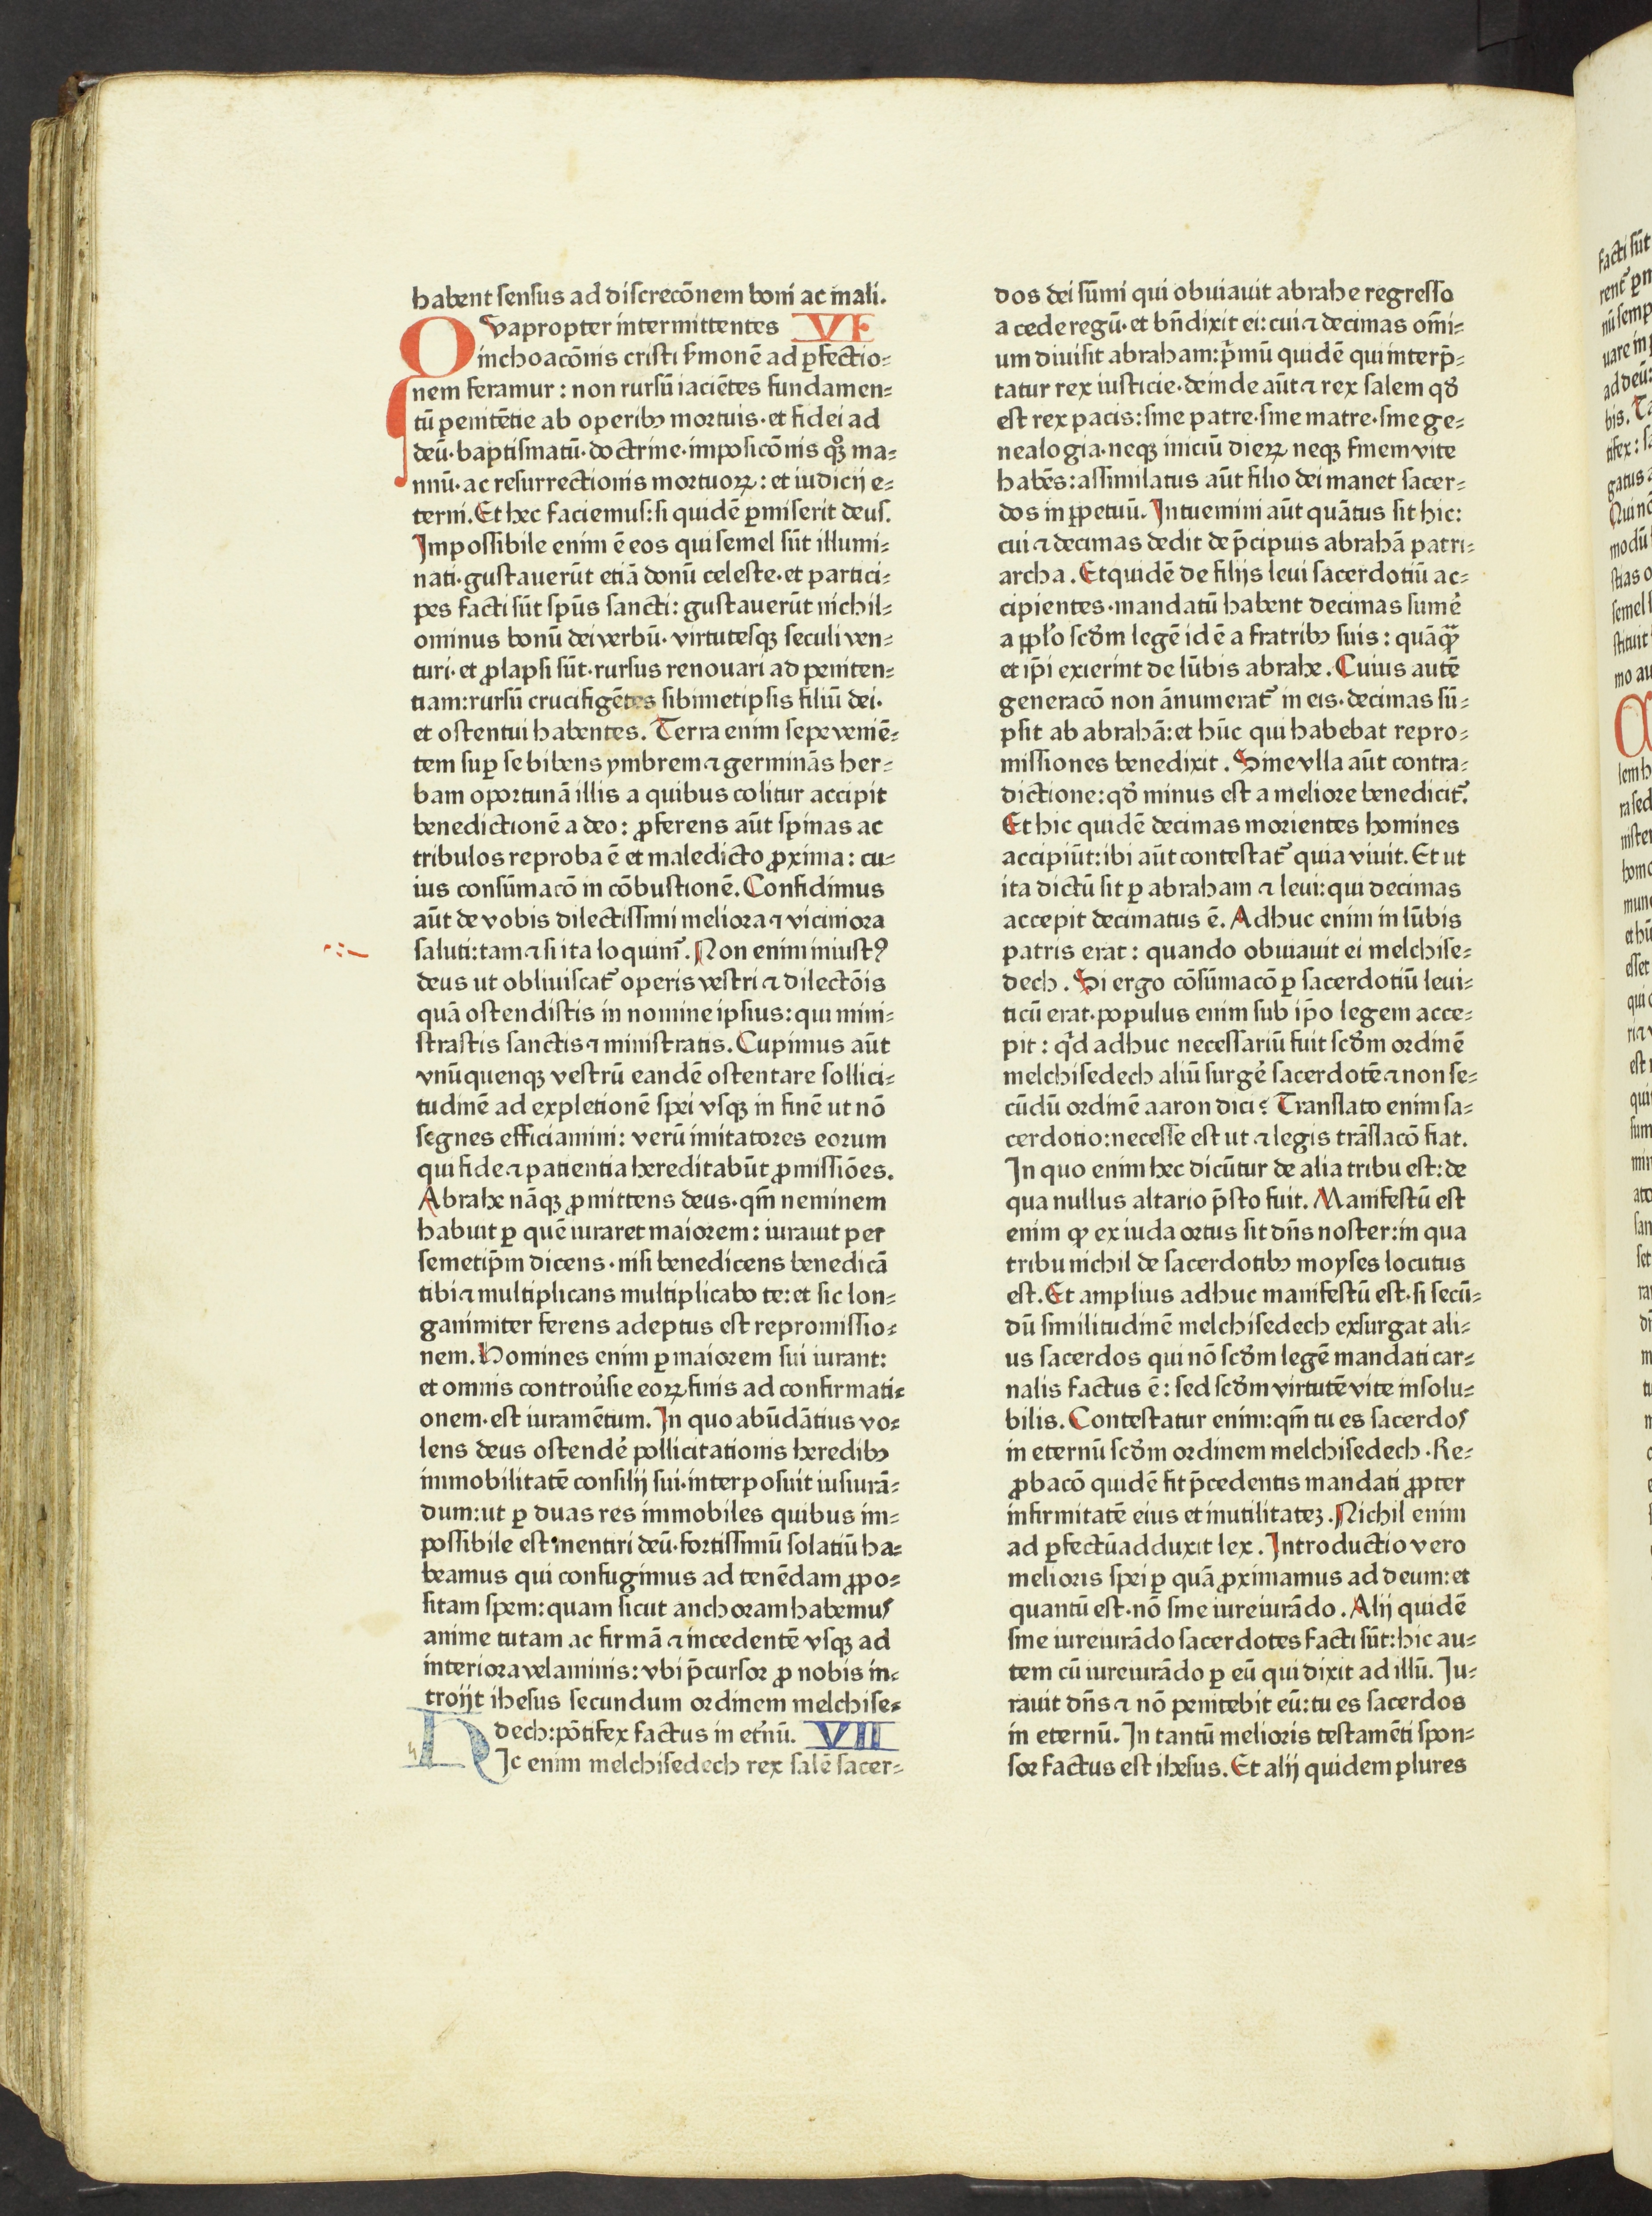 habent sensus ad discrecōnem boni ac mali.
Qvapropter intermittentes VI
inchoacōnis cristi ẜmonē ad ꝑfectio⸗
nem feramur : non rursū iaciētes fundamen⸗
tū penitētie ab operibꝫ mortuis· et fidei ad
deū· baptismatū· doctrine· imposicōnis qꝫ ma⸗
nuū· ac resurrectionis mortuoꝝ : et iudicij e⸗
terni. Et hec faciemus: si quidē ꝑmiserit deus.
Impossibile enim ē eos qui semel sūt illumi⸗
nati· gustauerūt etiā donū celeste· et partici⸗
pes facti sūt spūs sancti: gustauerūt nichil⸗
ominus bonū dei verbū· virtutesqꝫ seculi ven⸗
turi· et ꝓlapsi sūt· rursus renouari ad peniten⸗
tiam: rursū crucifigētes sibimetipsis filiū dei·
et ostentui habentes. Terra enim sepe veniē⸗
tem suꝑ se bibens ymbrem ⁊ germinās her⸗
bam oportunā illis a quibus colitur accipit
benedictionē a deo: ꝓferens aūt spinas ac
tribulos reproba ē et maledicto ꝓxima: cu⸗
ius consūmacō in cōbustionē. Confidimus
aūt de vobis dilectissimi meliora ⁊ viciniora
saluti: tam ⁊ si ita loquimᷣ. Non enim iniustꝰ
deus ut obliuiscatᷣ operis vestri ⁊ dilectōis
quā ostendistis in nomine ipsius: qui mini⸗
strastis sanctis ⁊ ministratis. Cupimus aūt
vnūquenqꝫ vestrū eandē ostentare sollici⸗
tudinē ad expletionē spei vsqꝫ in finē ut nō
segnes efficiamini: verū imitatores eorum
qui fide ⁊ patientia hereditabūt ꝓmissiōes.
Abrahe nāqꝫ ꝓmittens deus· qm̄ neminem
habuit ꝑ quē iuraret maiorem: iurauit per
semetip̄m dicens· nisi benedicens benedicā
tibi ⁊ multiplicans multiplicabo te: et sic lon⸗
ganimiter ferens adeptus est repromissio⸗
nem. Homines enim ꝑ maiorem sui iurant:
et omnis controu̓sie eoꝝ finis ad confirmati⸗
onem· est iuramētum. In quo abūdātius vo⸗
lens deus ostendē pollicitationis heredibꝫ
immobilitatē consilij sui· interposuit iusiurā⸗
dum: ut ꝑ duas res immobiles quibus im⸗
possibile est mentiri deū· fortissimū solatiū ha⸗
beamus qui confugimus ad tenēdam ꝓpo⸗
sitam spem: quam sicut anchoram habemus
anime tutam ac firmā ⁊ incedentē vsqꝫ ad
interiora velaminis: vbi p̄cursor ꝓ nobis in⸗
troijt ihesus secundum ordinem melchise⸗
dech: pōtifex factus in etn̄ū. VII
HIc enim melchisedech rex salē sacer⸗
dos dei sūmi qui obuiauit abrahe regresso
a cede regū· et bn̄dixit ei: cui ⁊ decimas om̄i⸗
um diuisit abraham: pͥmū quidē qui interp̄⸗
tatur rex iusticie· deinde aūt ⁊ rex salem qd̄
est rex pacis: sine patre· sine matre· sine ge⸗
nealogia· neqꝫ iniciū dieꝝ neqꝫ finem vite
habēs: assimilatus aūt filio dei manet sacer⸗
dos in ꝑpetuū. Intuemini aūt quātus sit hic:
cui ⁊ decimas dedit de p̄cipuis abrahā patri⸗
archa. Et quidē de filijs leui sacerdotiū ac⸗
cipientes· mandatū habent decimas sumē
a pp̄lo scd̄m legē id ē a fratribꝫ suis: quāqᷓꝫ
et ip̄i exierint de lūbis abrahe. Cuius autē
generacō non ānumeratᷣ in eis· decimas sū⸗
psit ab abrahā: et hūc qui habebat repro⸗
missiones benedixit. Sine vlla aūt contra⸗
dictione: qd̄ minus est a meliore benedicitᷣ.
Et hic quidē decimas morientes homines
accipiūt: ibi aūt contestatᷣ quia viuit. Et ut
ita dictū sit ꝑ abraham ⁊ leui: qui decimas
accepit decimatus ē. Adhuc enim in lūbis
patris erat : quando obuiauit ei melchise⸗
dech. Si ergo cōsūmacō ꝑ sacerdotiū leui⸗
ticū erat· populus enim sub ip̄o legem acce⸗
pit : qͥd adhuc necessariū fuit scd̄m ordinē
melchisedech aliū surgē sacerdotē ⁊ non se⸗
cūdū ordinē aaron dici? Translato enim sa⸗
cerdotio: necesse est ut ⁊ legis trāslacō fiat.
In quo enim hec dicūtur de alia tribu est: de
qua nullus altario p̄sto fuit. Manifestū est
enim ꝙ ex iuda ortus sit dn̄s noster: in qua
tribu nichil de sacerdotibꝫ moyses locutus
est. Et amplius adhuc manifestū est· si secū⸗
dū similitudinē melchisedech exsurgat ali⸗
us sacerdos qui nō scd̄m legē mandati car⸗
nalis factus ē: sed scd̄m virtutē vite insolu⸗
bilis. Contestatur enim: qm̄ tu es sacerdos
in eternū scd̄m ordinem melchisedech. Re⸗
ꝓbacō quidē fit p̄cedentis mandati ꝓpter
infirmitatē eius et inutilitateꝫ. Nichil enim
ad ꝑfectū adduxit lex. Introductio vero
melioris spei ꝑ quā ꝓximamus ad deum: et
quantū est· nō sine iureiurādo. Alij quidē
sine iureiurādo sacerdotes facti sūt: hic au⸗
tem cū iureiurādo ꝑ eū qui dixit ad illū. Iu⸗
rauit dn̄s ⁊ nō penitebit eū: tu es sacerdos
in eternū. In tantū melioris testamēti spon⸗
sor factus est ihesus. Et alij quidem plures